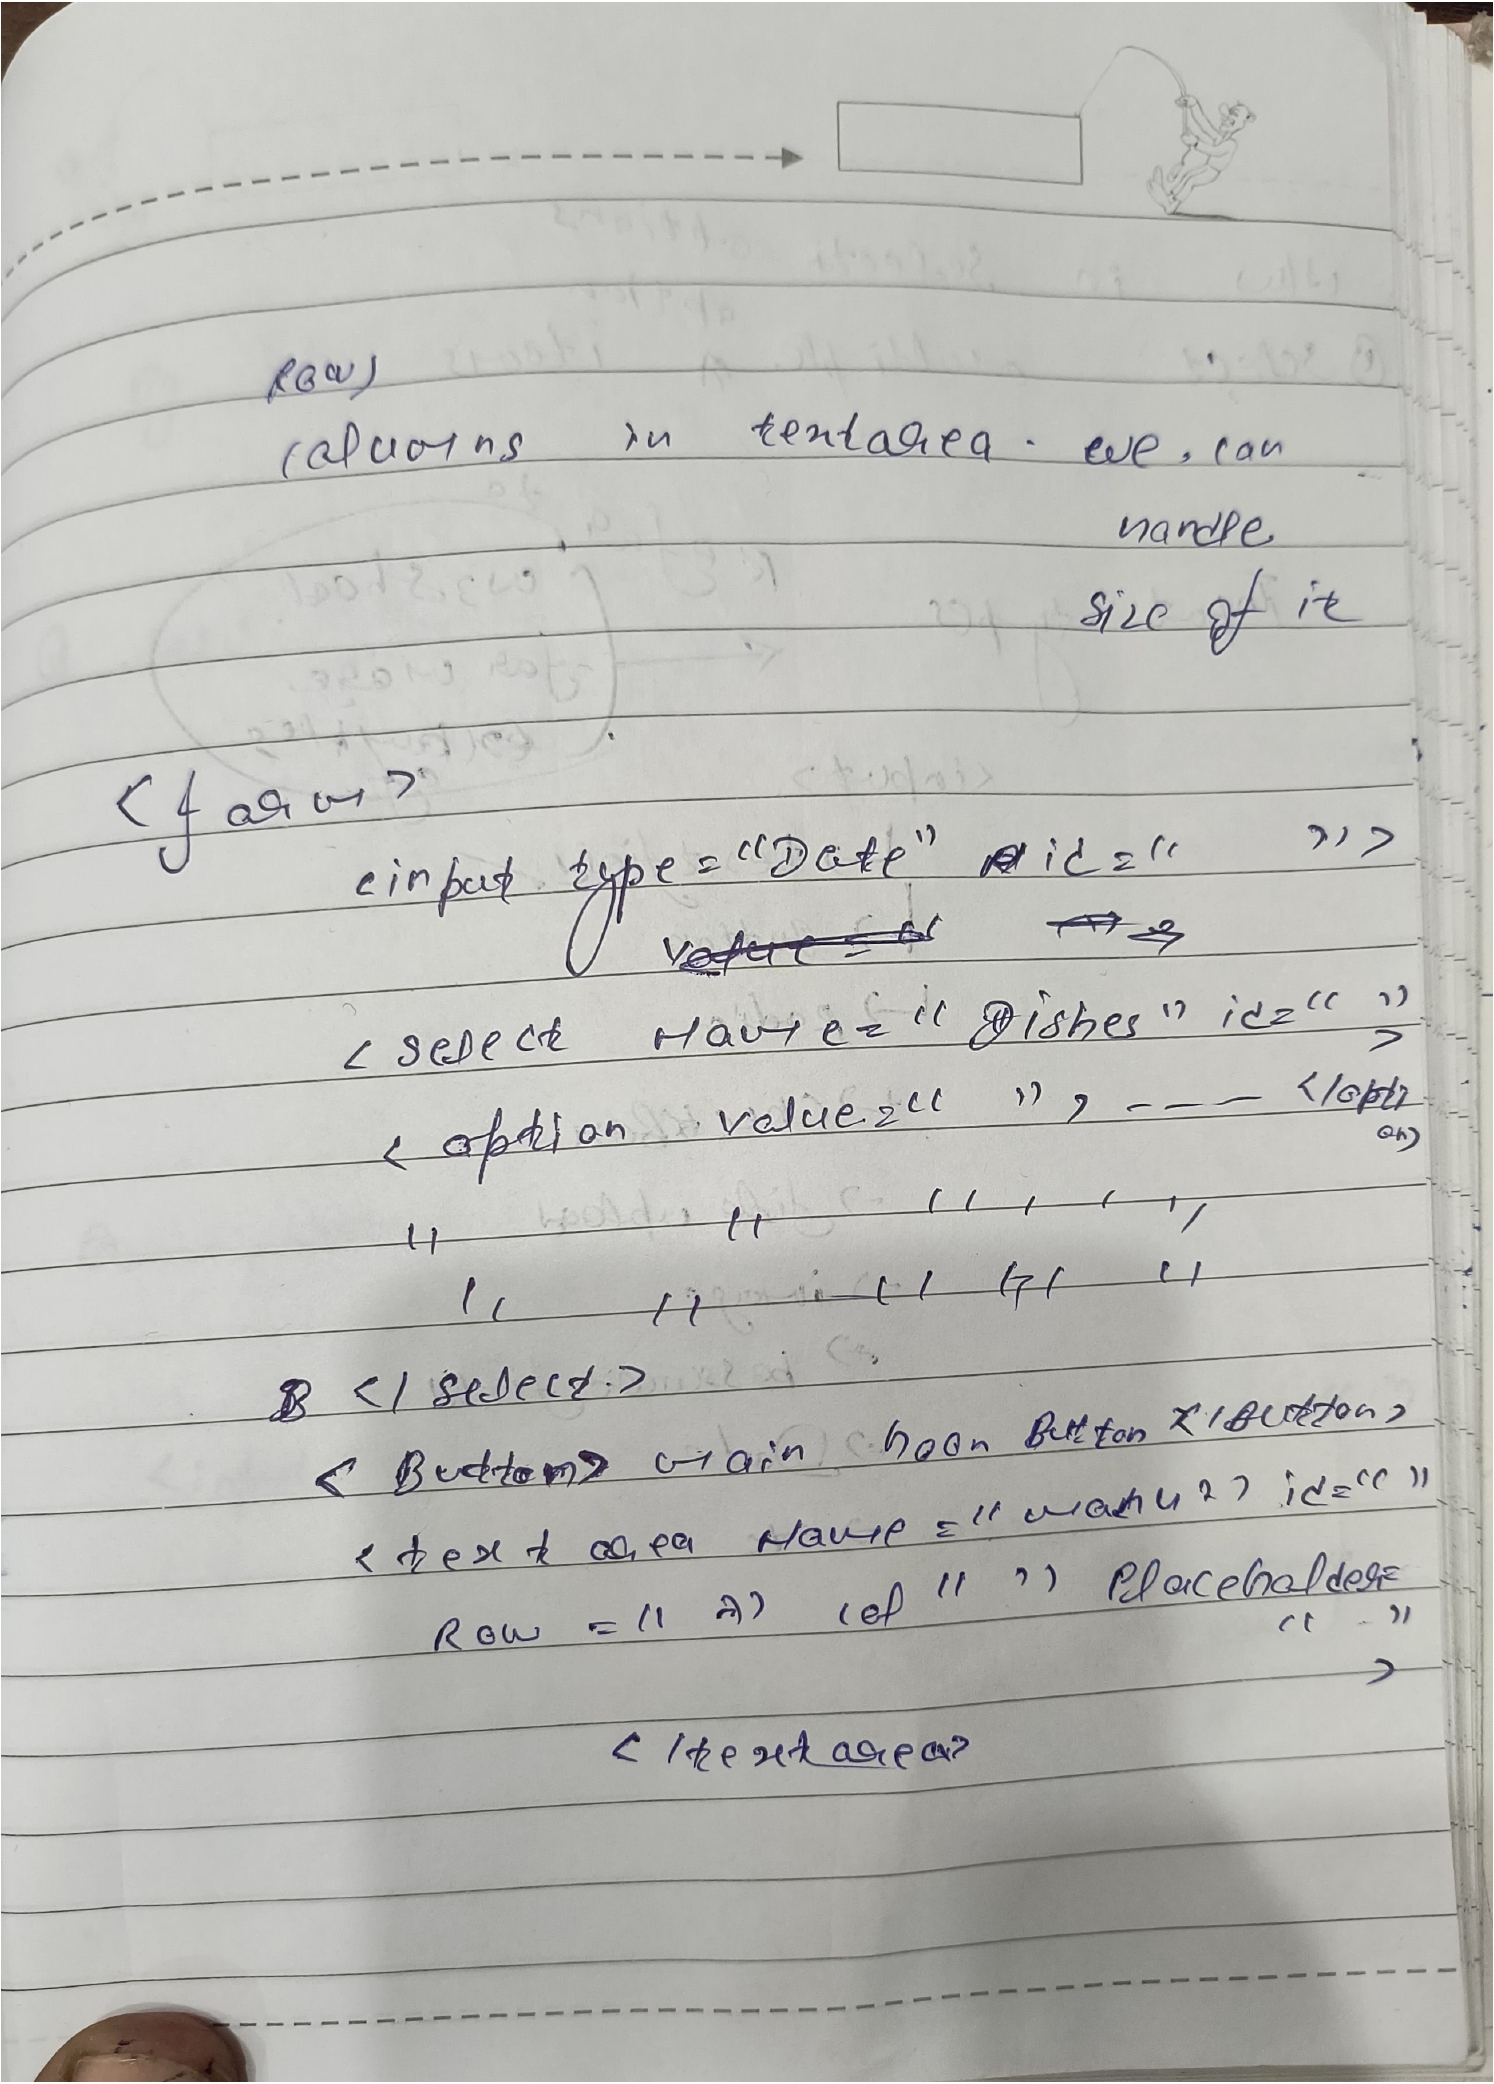 Rows
columns in textarea. we can
handle
size of it
<form>
<input type="Date" id=" ">
<select Name="Dishes" id=" "
>
<option value=" ", --- </opti
on>
" " " " "
" " " " "
</select>
<Button> main hoon Button </Button>
<text area Name="manu" id=" "
Row = " " col " " Placeholder=
" "
>
</textarea>